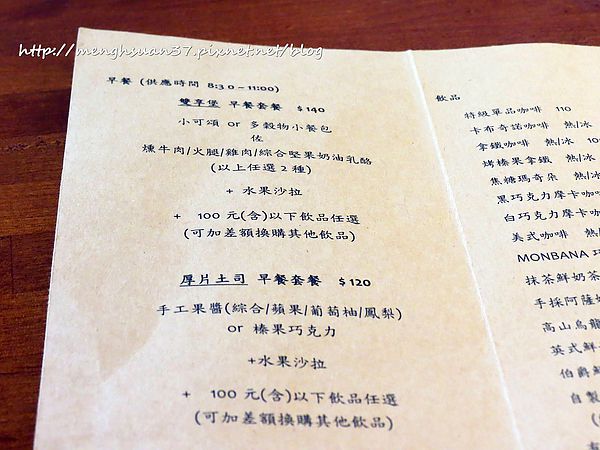 http://menghsuan37.pixnet.net/blog
早餐 (供應時間 8:30~11:00)
雙享堡 早餐套餐 $140
小可頌 or 多穀物小餐包
佐
燻牛肉/火腿/雞肉/綜合堅果奶油乳酪
(以上任選2種)
+ 水果沙拉
+ 100 元(含)以下飲品任選
(可加差額換購其他飲品)
厚片土司 早餐套餐 $120
手工果醬(綜合/蘋果/葡萄柚/鳳梨)
or 榛果巧克力
+水果沙拉
+ 100 元(含)以下飲品任選
(可加差額換購其他飲品)
飲品
特級單品咖啡 110
卡布奇諾咖啡 熱/冰
拿鐵咖啡 熱/冰 10
烤榛果拿鐵 熱/冰
焦糖瑪奇朵 熱/冰
黑巧克力摩卡咖
白巧克力摩卡咖
美式咖啡 熱/
MONBANA 巧
抹茶鮮奶茶
手採阿薩
高山烏龍
英式鮮
伯爵
自製